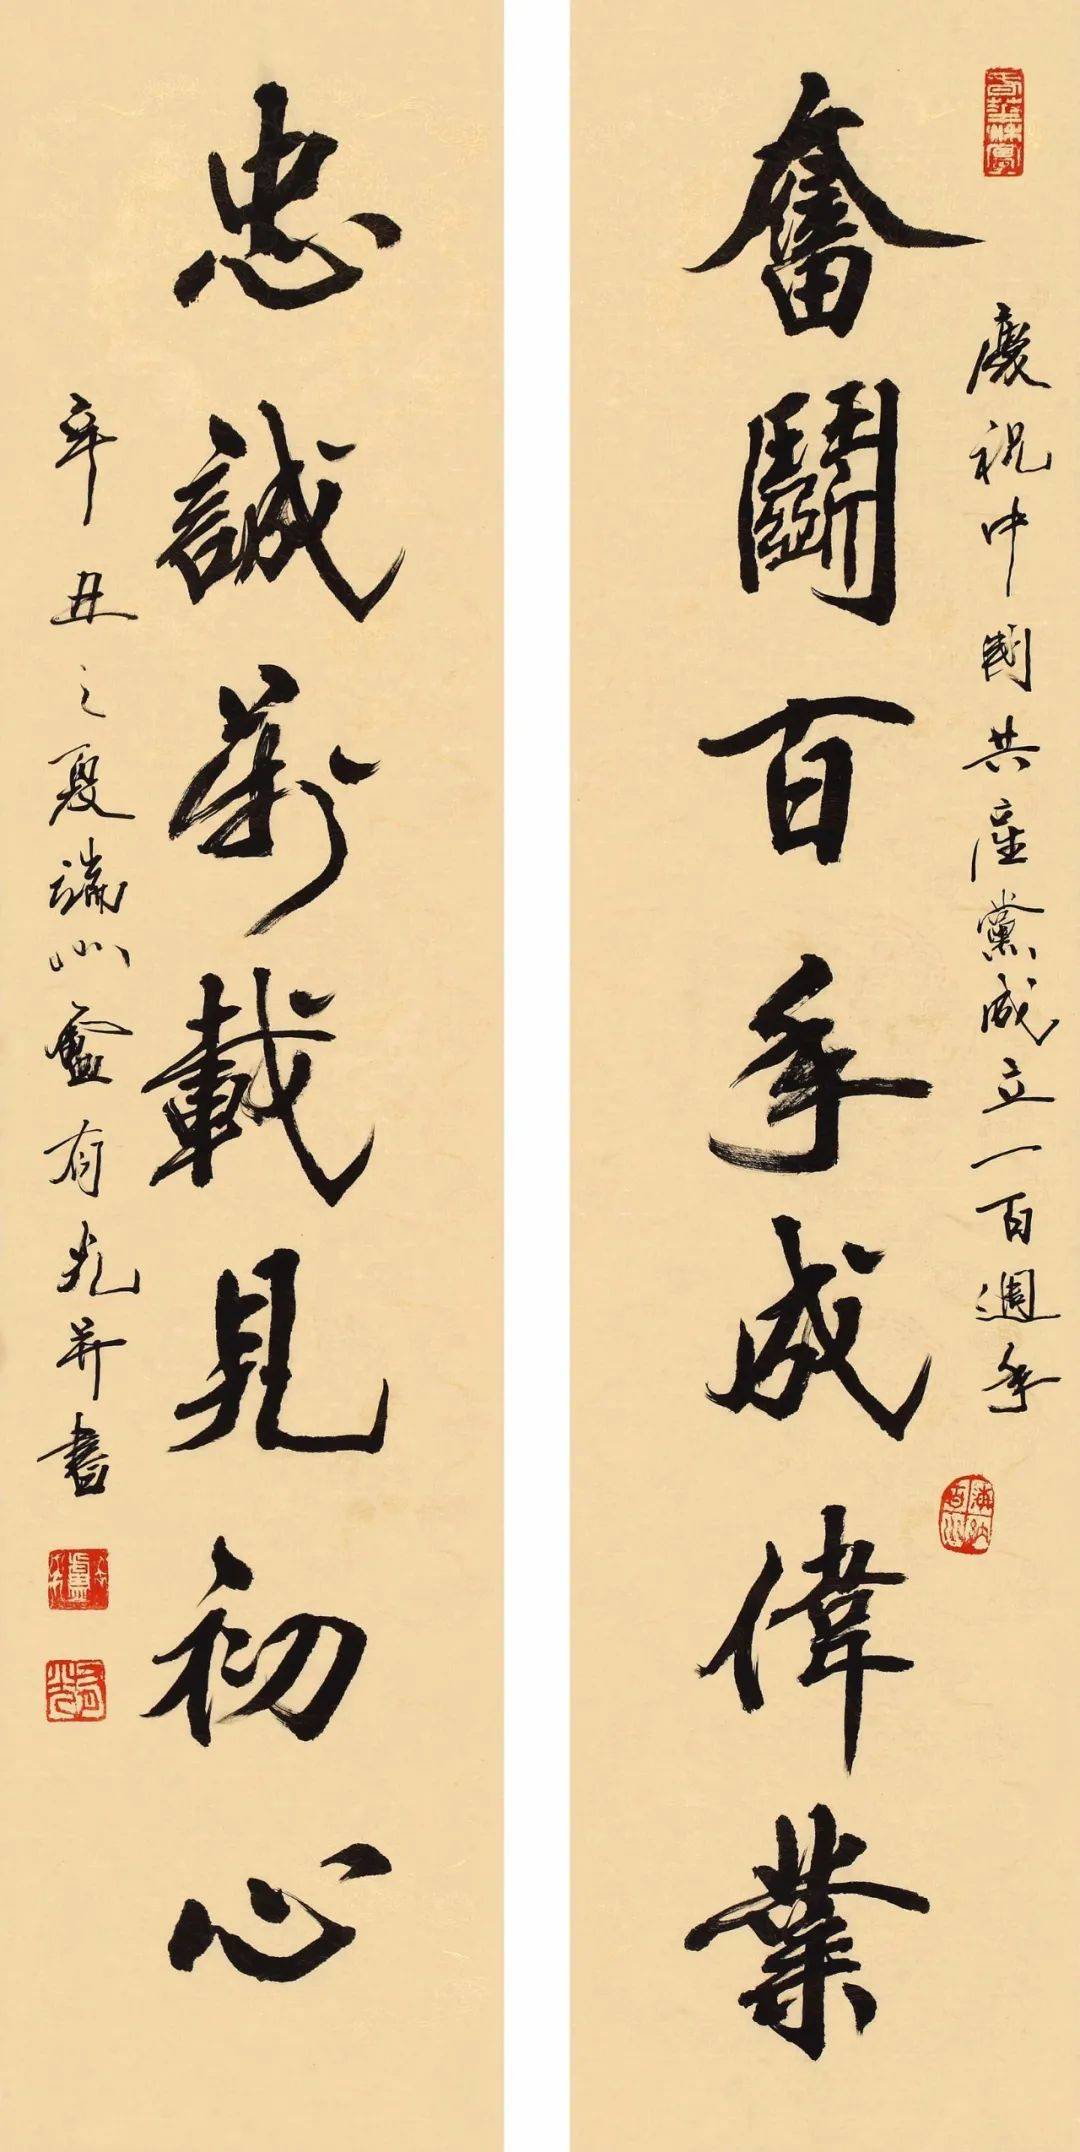 慶祝中國共產黨成立一百週年
奮鬬百年成偉業
忠誠萬載見初心
辛丑之夏端州盧有光并書
海納百川
有光